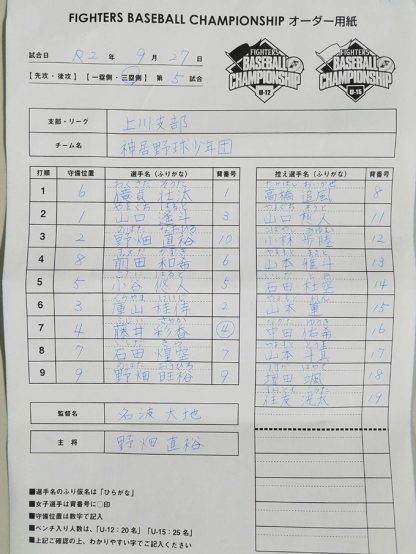 FIGHTERS BASEBALL CHAMPIONSHIP オーダー用紙
試合日 R2 年 9 月 27 日
【 先攻・後攻 】【 一塁側・三塁側 】第 5 試合
FIGHTERS BASEBALL CHAMPIONSHIP U-12
FIGHTERS BASEBALL CHAMPIONSHIP U-15
支部・リーグ 上川支部
チーム名 神居野球少年団
打順 守備位置 選手名(ふりがな) 背番号
1 6 壮太 1
2 1 山口 遥斗 3
3 2 野畑 直裕 10
4 8 前田 和希 6
5 5 小谷 悠人 5
6 3 庫山 桂侍 2
7 4 藤井 彩香 ④
8 7 石田 煌空 7
9 9 野畑 旺裕 9
控え選手名(ふりがな) 背番号
高橋 追風 8
山口 槙人 11
小林 歩陸 12
山本 雅斗 13
石田 杜空 14
山本 薫 15
中田 佑希 16
山本 斗真 17
増田 颯 18
住友 滉太 19
監督名 名波 大地
主 将 野畑 直裕
■選手名のふり仮名は「ひらがな」
■女子選手は背番号に○印
■守備位置は数字で記入
■ベンチ入り人数は、「U-12:20名」「U-15:25名」
■上記ご確認の上、わかりやすい字でご記入ください